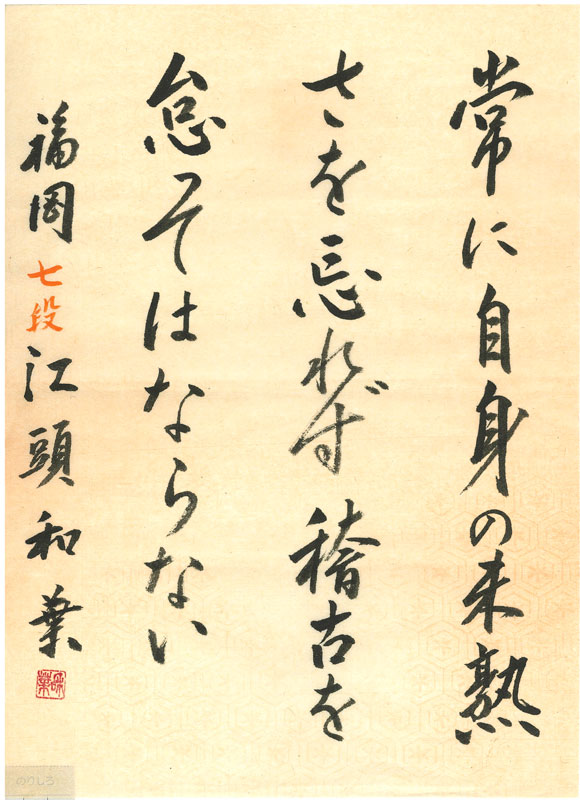 常に自身の未熟
さを忘れず稽古を
怠ってはならない
福岡 七段 江頭和葉
和葉
のりしろ